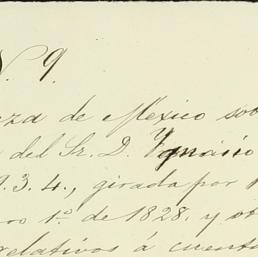 N. 9.
eza de Mexico sob
del Sr. D. Ygnacio
.3.4., girada por
ro 1.º de 1828. y ot
relativos á cuenta